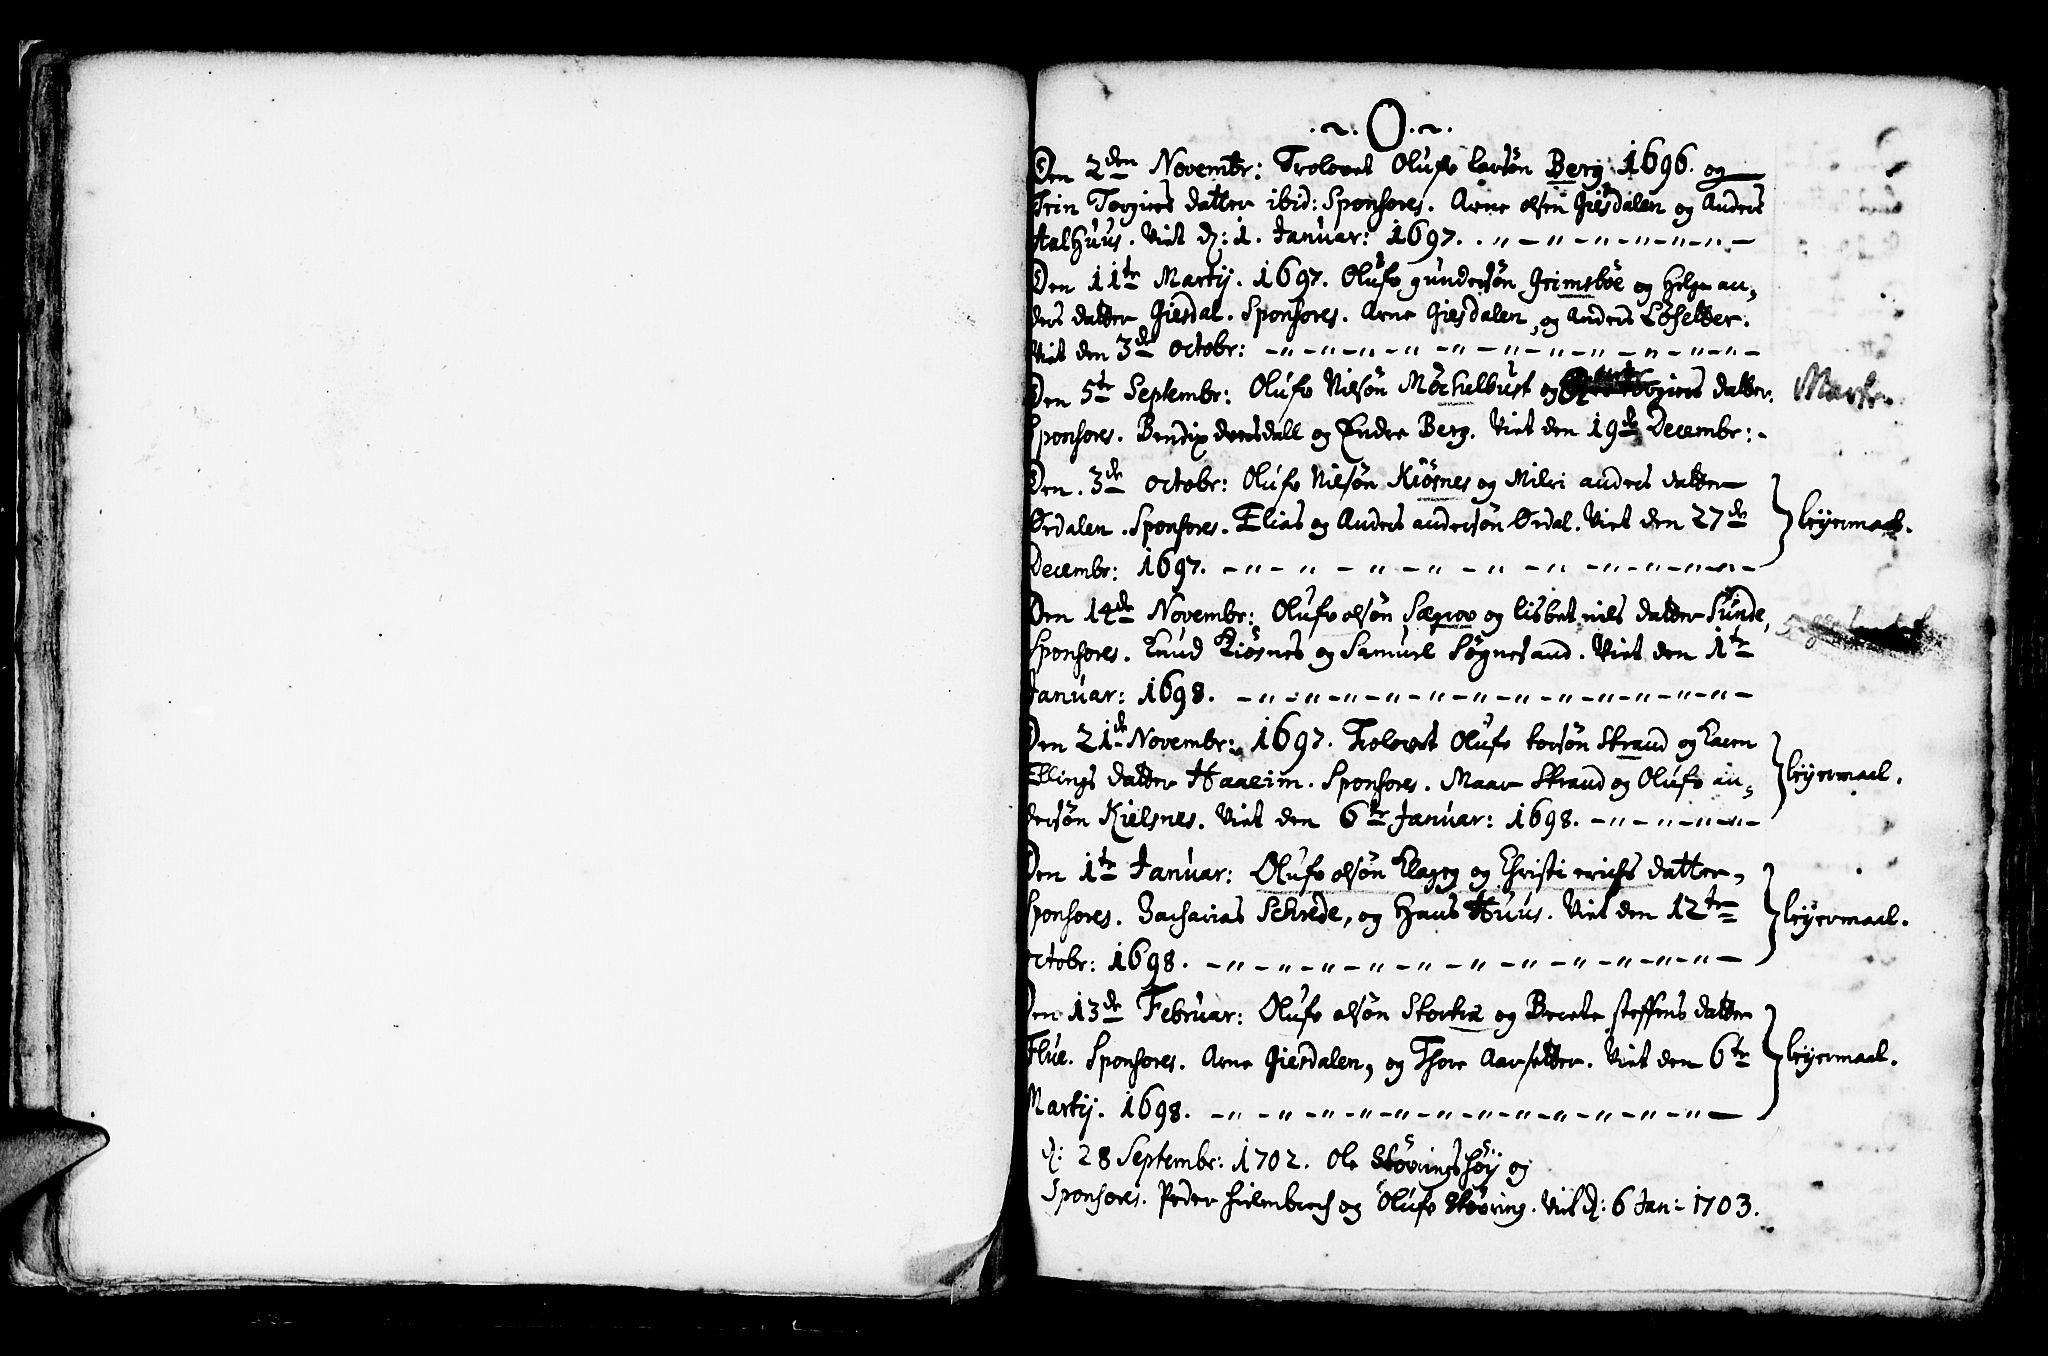 ·~. O .~.
Den 2den Novembr: Trolovet Olufv larsön Berg 1696. og
Trin Torgiers datter ibid: Sponsores. Arne olsen Giesdalen og Anders
Aalhuus. Viet d: 1. Januar: 1697.
Den 11te Martij. 1697. Olufv gundersön Grimsböe og Helge an,
ders datter Giesdal. Sponsores. Arne Giesdalen, og Anders Löseter.
Viet den 3de octobr:
Den 5te Septembr: Olufv Nilsön Möchelbust og Torgiers datter. Marte
Sponsores. Bendix dvergsdall og Endre Berg. Viet den 19de Decembr:
Den. 3de octobr: Olufv Nilsön Kiösnes og Milri anders datter
Ørdalen. Sponsores. Elias og Anders andersön Ørdal. Viet den 27de leÿermaal.
Decembr: 1697.
Den 14de Novembr: Olufv olsön Sægrov og lisbet nils datter Sunde,
Sponsores. Knud Kiösnes og Samuel Sögnesand. Viet den 1te
Januar: 1698.
Den 21de Novembr: 1697. Trolovet Olufv torsön Strand og Karn
Ellings datter Haaeim. Sponsores. Maar Strand og Olufv an, leÿermaal.
dersön Kielsnes. Viet den 6te Januar: 1698.
Den 1te Januar: Olufv olsön Klageg og Christi erichs datter,
Sponsores. Zacharias Schrede, og Hans Huus. Viet den 12te leÿermaal.
octobr: 1698.
Den 13de Februar: Olufv olsön Stortræ og Berete steffens datter
Flue. Sponsores. Arne Giesdalen, og Thore Aarsetter. Viet den 6te leÿermaal.
Martij. 1698.
d: 28 Septembr: 1702. Ole Stövringshöij og
Sponsores. Peder og Olufv Stövring. Viet d: 6 Jan: 1703.